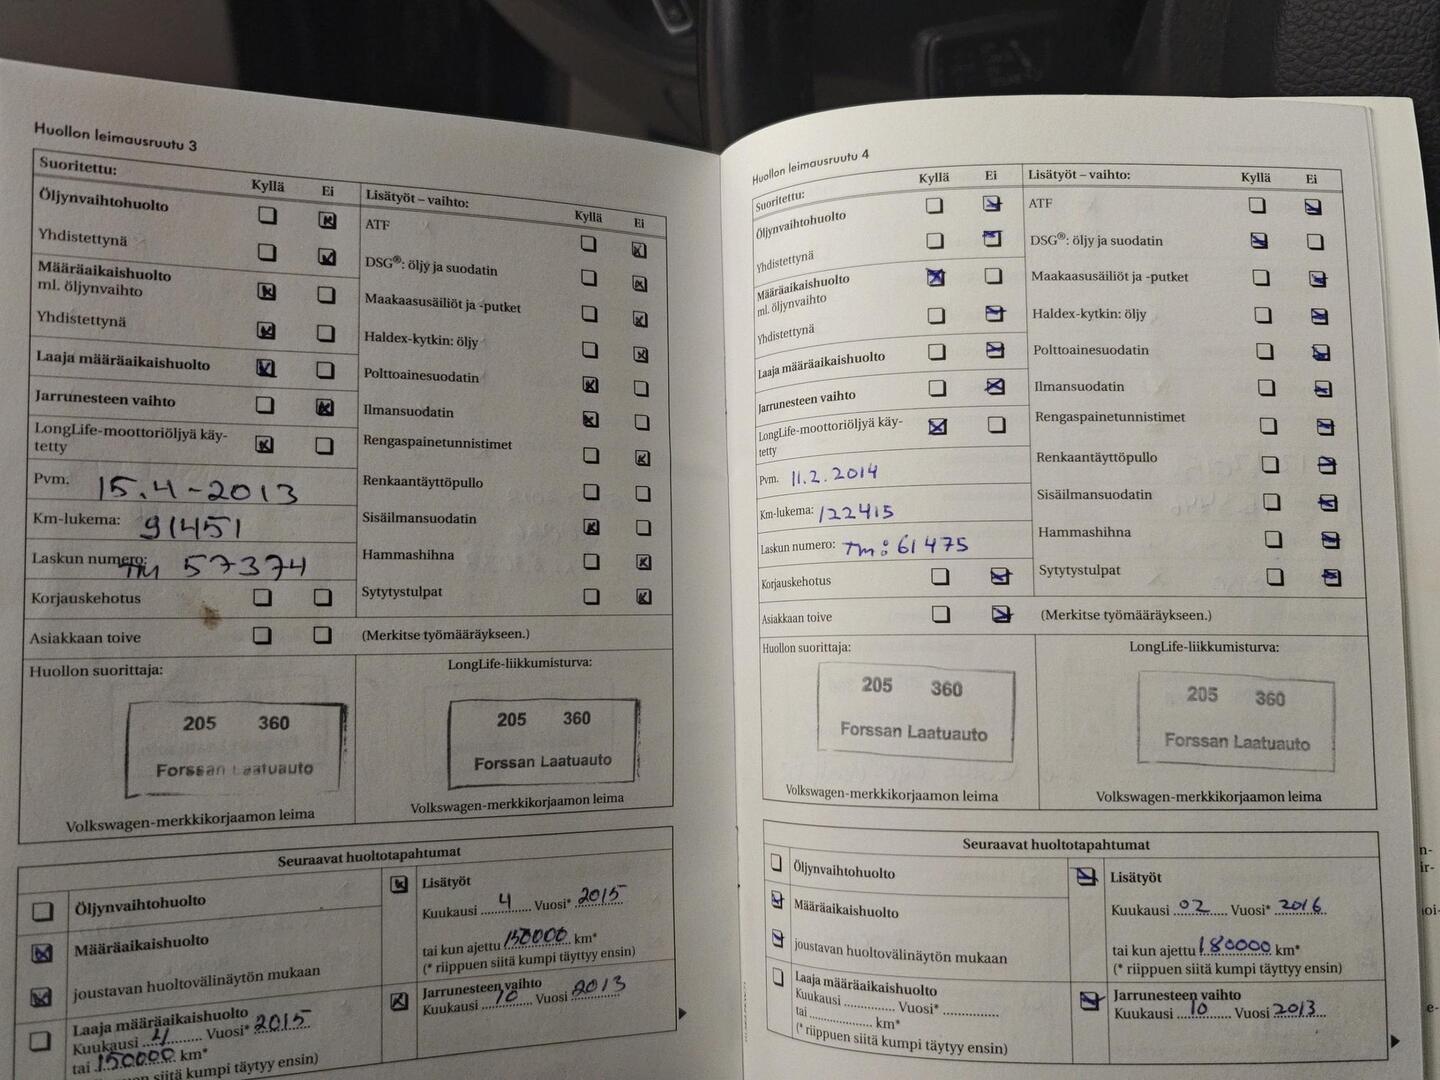 Huollon leimausruutu 3
Suoritettu:
Kyllä Ei
Öljynvaihtohuolto
Yhdistettynä
Määräaikaishuolto
ml. öljynvaihto
Yhdistettynä
Laaja määräaikaishuolto
Jarrunesteen vaihto
LongLife-moottoriöljyä käy-
tetty
Pvm. 15.4-2013
Km-lukema: 91451
Laskun numero: TM 57374
Korjauskehotus
Asiakkaan toive
Lisätyöt – vaihto:
Kyllä Ei
ATF
DSG®: öljy ja suodatin
Maakaasusäiliöt ja -putket
Haldex-kytkin: öljy
Polttoainesuodatin
Ilmansuodatin
Rengaspainetunnistimet
Renkaantäyttöpullo
Sisäilmansuodatin
Hammashihna
Sytytystulpat
(Merkitse työmääräykseen.)
Huollon suorittaja:
205 360
Forssan Laatuauto
Volkswagen-merkkikorjaamon leima
LongLife-liikkumisturva:
205 360
Forssan Laatuauto
Volkswagen-merkkikorjaamon leima
Seuraavat huoltotapahtumat
Öljynvaihtohuolto
Määräaikaishuolto
joustavan huoltovälinäytön mukaan
Laaja määräaikaishuolto
Kuukausi 4 Vuosi* 2015
tai 150000 km*
siitä kumpi täytyy ensin)
Lisätyöt
Kuukausi 4 Vuosi* 2015
tai kun ajettu 150000 km*
(* riippuen siitä kumpi täyttyy ensin)
Jarrunesteen vaihto
Kuukausi 10 Vuosi 2013
Huollon leimausruutu 4
Suoritettu:
Kyllä Ei
Öljynvaihtohuolto
Yhdistettynä
Määräaikaishuolto
ml. öljynvaihto
Yhdistettynä
Laaja määräaikaishuolto
Jarrunesteen vaihto
LongLife-moottoriöljyä käy-
tetty
Pvm. 11.2.2014
Km-lukema: 122415
Laskun numero: TM: 61475
Korjauskehotus
Asiakkaan toive
Lisätyöt – vaihto:
Kyllä Ei
ATF
DSG®: öljy ja suodatin
Maakaasusäiliöt ja -putket
Haldex-kytkin: öljy
Polttoainesuodatin
Ilmansuodatin
Rengaspainetunnistimet
Renkaantäyttöpullo
Sisäilmansuodatin
Hammashihna
Sytytystulpat
(Merkitse työmääräykseen.)
Huollon suorittaja:
205 360
Forssan Laatuauto
Volkswagen-merkkikorjaamon leima
LongLife-liikkumisturva:
205 360
Forssan Laatuauto
Volkswagen-merkkikorjaamon leima
Seuraavat huoltotapahtumat
Öljynvaihtohuolto
Määräaikaishuolto
joustavan huoltovälinäytön mukaan
Laaja määräaikaishuolto
Kuukausi Vuosi*
tai km*
(* riippuen siitä kumpi täytyy ensin)
Lisätyöt
Kuukausi 02 Vuosi* 2016
tai kun ajettu 180000 km*
(* riippuen siitä kumpi täyttyy ensin)
Jarrunesteen vaihto
Kuukausi 10 Vuosi 2013